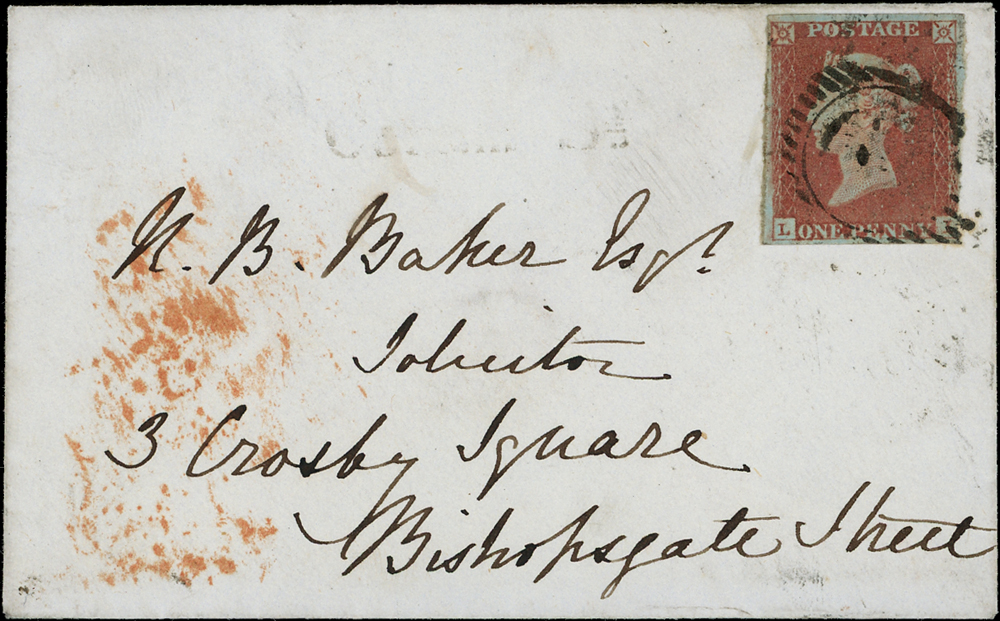 POSTAGE
L ONE PENNY
N. B. Baker Esqr
Solicitor
3 Crosby Square
Bishopsgate Street